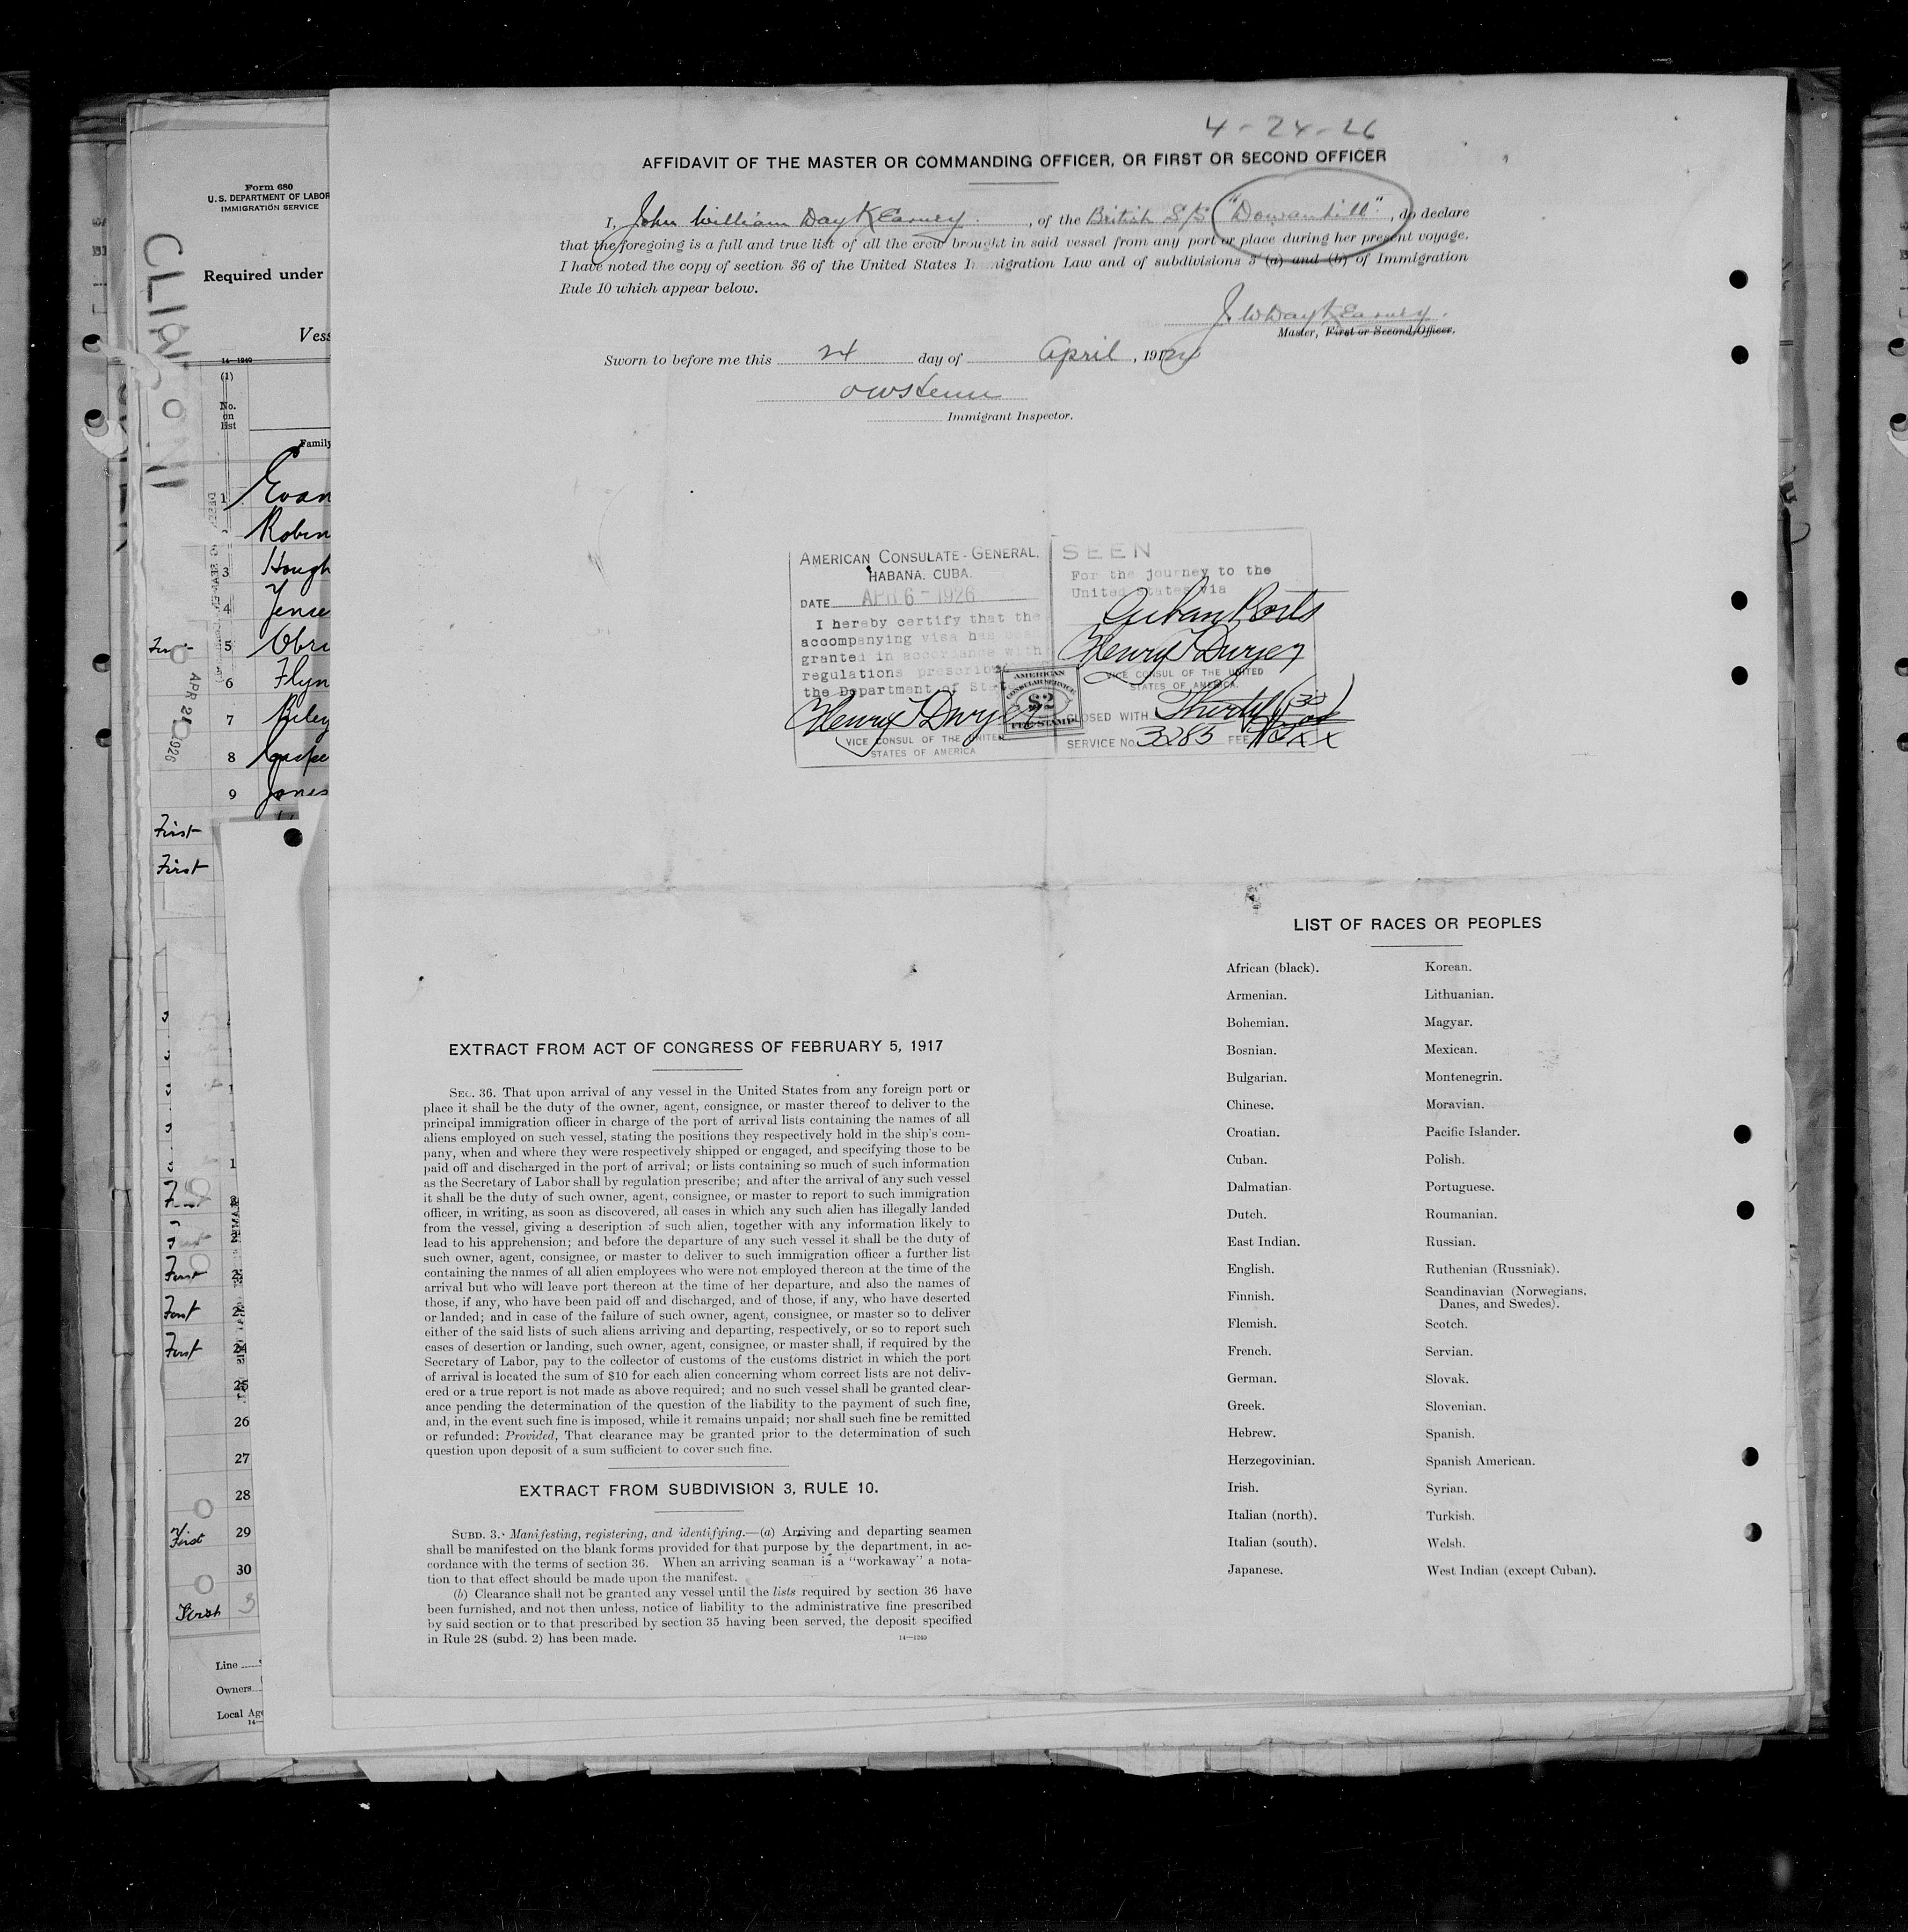 4-24-26
AFFIDAVIT OF THE MASTER OR COMMANDING OFFICER, OR FIRST OR SECOND OFFICER
I, John William Day Kearney, of the British S/S "Dowanhill", do declare
that the foregoing is a full and true list of all the crew brought in said vessel from any port or place during her present voyage.
I have noted the copy of section 36 of the United States Immigration Law and of subdivisions 3 (a) and (b) of Immigration
Rule 10 which appear below.
J W Day Kearney.
Master, First or Second Officer.
Sworn to before me this 24 day of April, 192
Immigrant Inspector.
AMERICAN CONSULATE-GENERAL,
HABANA, CUBA.
DATE APR 6 - 1926
I hereby certify that the
accompanying visa has been
granted in accordance with
regulations prescribed
the Department of State
Henry T Dwyer
VICE CONSUL OF THE UNITED
STATES OF AMERICA
SEEN
For the journey to the
United States via
Cuban Ports
Henry T Dwyer
VICE CONSUL OF THE UNITED
STATES OF AMERICA.
CLOSED WITH Thirty (30)
SERVICE No. 3285 FEE
AMERICAN
CONSULAR SERVICE
$2
FEE STAMP
EXTRACT FROM ACT OF CONGRESS OF FEBRUARY 5, 1917
SEC. 36. That upon arrival of any vessel in the United States from any foreign port or
place it shall be the duty of the owner, agent, consignee, or master thereof to deliver to the
principal immigration officer in charge of the port of arrival lists containing the names of all
aliens employed on such vessel, stating the positions they respectively hold in the ship's com-
pany, when and where they were respectively shipped or engaged, and specifying those to be
paid off and discharged in the port of arrival; or lists containing so much of such information
as the Secretary of Labor shall by regulation prescribe; and after the arrival of any such vessel
it shall be the duty of such owner, agent, consignee, or master to report to such immigration
officer, in writing, as soon as discovered, all cases in which any such alien has illegally landed
from the vessel, giving a description of such alien, together with any information likely to
lead to his apprehension; and before the departure of any such vessel it shall be the duty of
such owner, agent, consignee, or master to deliver to such immigration officer a further list
containing the names of all alien employees who were not employed thereon at the time of the
arrival but who will leave port thereon at the time of her departure, and also the names of
those, if any, who have been paid off and discharged, and of those, if any, who have deserted
or landed; and in case of the failure of such owner, agent, consignee, or master so to deliver
either of the said lists of such aliens arriving and departing, respectively, or so to report such
cases of desertion or landing, such owner, agent, consignee, or master shall, if required by the
Secretary of Labor, pay to the collector of customs of the customs district in which the port
of arrival is located the sum of $10 for each alien concerning whom correct lists are not deliv-
ered or a true report is not made as above required; and no such vessel shall be granted clear-
ance pending the determination of the question of the liability to the payment of such fine,
and, in the event such fine is imposed, while it remains unpaid; nor shall such fine be remitted
or refunded: Provided, That clearance may be granted prior to the determination of such
question upon deposit of a sum sufficient to cover such fine.
EXTRACT FROM SUBDIVISION 3, RULE 10.
SUBD. 3. Manifesting, registering, and identifying.—(a) Arriving and departing seamen
shall be manifested on the blank forms provided for that purpose by the department, in ac-
cordance with the terms of section 36. When an arriving seaman is a "workaway" a nota-
tion to that effect should be made upon the manifest.
(b) Clearance shall not be granted any vessel until the lists required by section 36 have
been furnished, and not then unless, notice of liability to the administrative fine prescribed
by said section or to that prescribed by section 35 having been served, the deposit specified
in Rule 28 (subd. 2) has been made.
14—1240
LIST OF RACES OR PEOPLES
African (black).
Armenian.
Bohemian.
Bosnian.
Bulgarian.
Chinese.
Croatian.
Cuban.
Dalmatian.
Dutch.
East Indian.
English.
Finnish.
Flemish.
French.
German.
Greek.
Hebrew.
Herzegovinian.
Irish.
Italian (north).
Italian (south).
Japanese.
Korean.
Lithuanian.
Magyar.
Mexican.
Montenegrin.
Moravian.
Pacific Islander.
Polish.
Portuguese.
Roumanian.
Russian.
Ruthenian (Russniak).
Scandinavian (Norwegians,
Danes, and Swedes).
Scotch.
Servian.
Slovak.
Slovenian.
Spanish.
Spanish American.
Syrian.
Turkish.
Welsh.
West Indian (except Cuban).
Form 680
U.S. DEPARTMENT OF LABOR
IMMIGRATION SERVICE
Required under
Vess
14—1240
(1)
No.
on
list
Family
1 Evan
Robin
3 Hough
4 Jense
5 Obri
6 Flyn
7 Riley
8 Gaspe
9 Jones
APR 24 1926
First
First
First
First
First
24
25
26
27
28
29
First
30
First
Line
Owners
Local Age